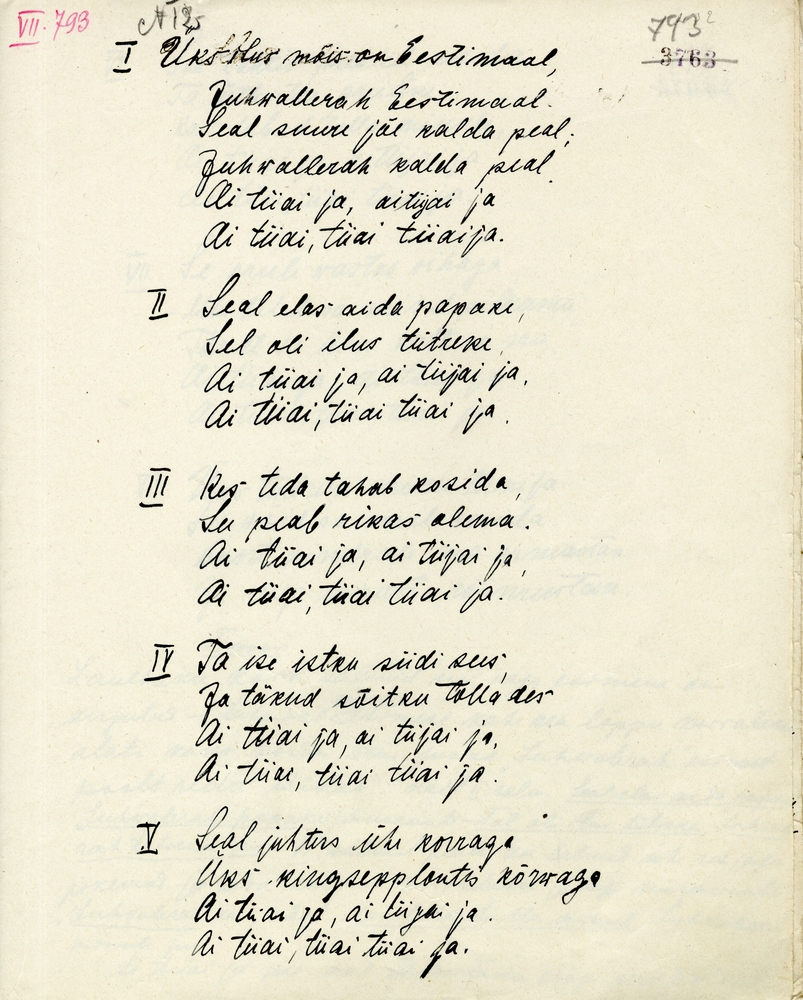 VII. 793
N 12
793²
3763
I Üks ilus mõis on Eestimaal,
Juhwallerah Eestimaal.
Seal suure jäe kalda peal;
Juhwallerah kalda peal.
Ai tiiai ja, ai tiijai ja
Ai tiiai, tiiai tiiaija.
II Seal elas aida papake,
Sel oli ilus tütreke,
Ai tiiai ja, ai tiijai ja,
Ai tiiai, tiiai tiiai ja.
III Kes teda tahab kosida,
See peab rikas olema.
Ai tiiai ja, ai tiijai ja,
Ai tiiai, tiiai tiiai ja.
IV Ta ise istku siidi sees,
Ja täkud sõitku tõllades
Ai tiiai ja, ai tiijai ja,
Ai tiiai, tiiai tiiai ja.
V Seal juhtus ühe korraga
Üks kingsepp lontis kõrwaga
Ai tiiai ja, ai tiijai ja.
Ai tiiai, tiiai tiiai ja.